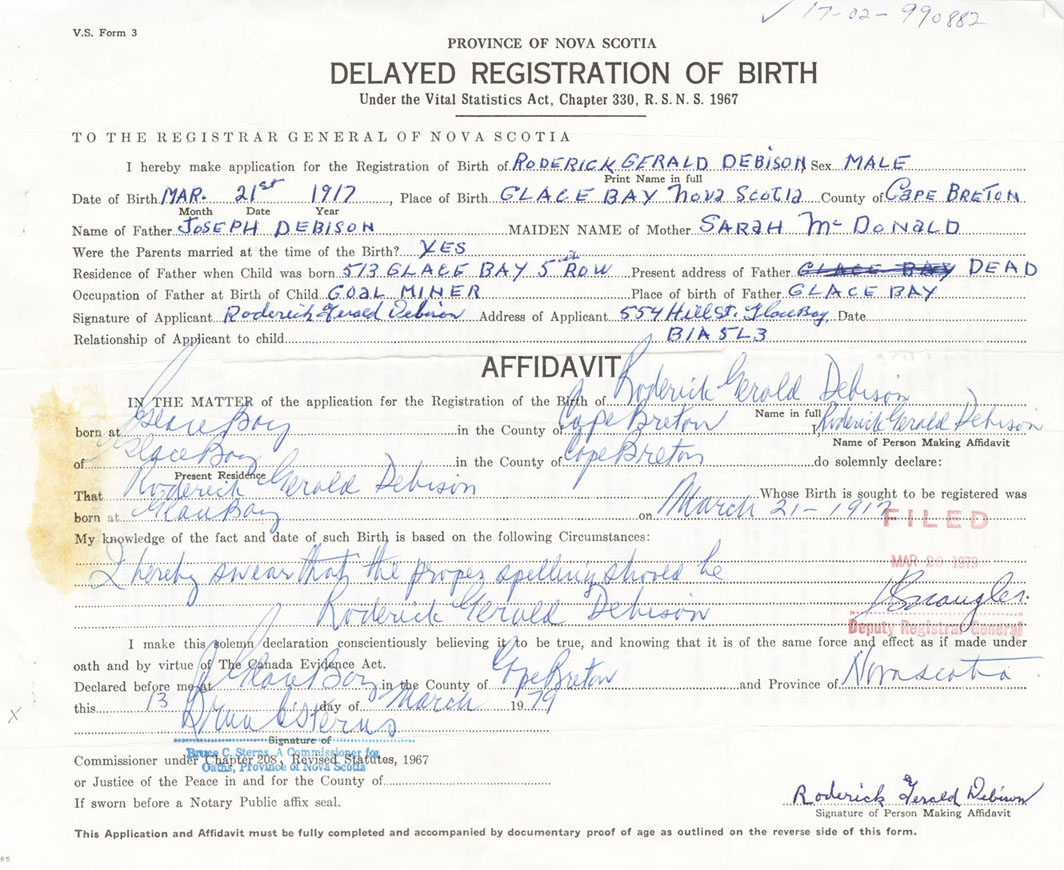 17-02-990882
V.S. Form 3
PROVINCE OF NOVA SCOTIA
DELAYED REGISTRATION OF BIRTH
Under the Vital Statistics Act, Chapter 330, R.S.N.S. 1967
TO THE REGISTRAR GENERAL OF NOVA SCOTIA
I hereby make application for the Registration of Birth of RODERICK GERALD DEBISON, Sex MALE
Print Name in full
Date of Birth MAR. 21st 1917, Place of Birth GLACE BAY NOVA SCOTIA County of CAPE BRETON
Month Date Year
Name of Father JOSEPH DEBISON MAIDEN NAME of Mother SARAH McDONALD
Were the Parents married at the time of the Birth? YES
Residence of Father when Child was born 513 GLACE BAY 5th ROW Present address of Father GLACE BAY DEAD
Occupation of Father at Birth of Child COAL MINER Place of birth of Father GLACE BAY
Signature of Applicant Roderick Gerald Debison Address of Applicant 554 Hill St. Glace Bay, Date
Relationship of Applicant to child B1A 5L3
AFFIDAVIT
IN THE MATTER of the application for the Registration of the Birth of Roderick Gerald Debison
Name in full
born at Glace Bay in the County of Cape Breton I, Roderick Gerald Debison
Name of Person Making Affidavit
of Glace Bay in the County of Cape Breton do solemnly declare:
Present Residence
That Roderick Gerald Debison Whose Birth is sought to be registered was
born at Glace Bay on March 21-1917
FILED
My knowledge of the fact and date of such Birth is based on the following Circumstances:
MAR 20 1979
I hereby swear that the proper spelling should be
Roderick Gerald Debison
Deputy Registrar General
I make this solemn declaration conscientiously believing it to be true, and knowing that it is of the same force and effect as if made under
oath and by virtue of The Canada Evidence Act.
Declared before me at Glace Bay in the County of Cape Breton and Province of Nova Scotia
this 13 day of March 1979
Bruce C Sterns
Signature of
Bruce C. Sterns, A Commissioner for
Oaths, Province of Nova Scotia
Commissioner under Chapter 208, Revised Statutes, 1967
or Justice of the Peace in and for the County of
If sworn before a Notary Public affix seal.
Roderick Gerald Debison
Signature of Person Making Affidavit
This Application and Affidavit must be fully completed and accompanied by documentary proof of age as outlined on the reverse side of this form.
85